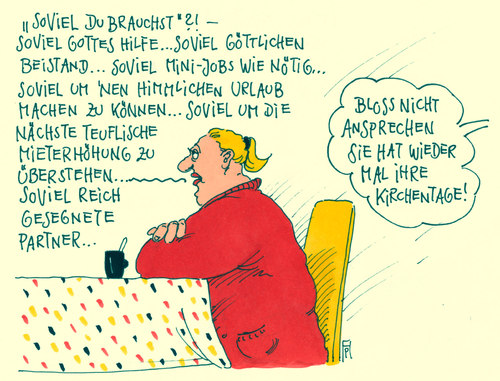 „SOVIEL DU BRAUCHST"?! –
SOVIEL GOTTES HILFE...SOVIEL GÖTTLICHEN
BEISTAND... SOVIEL MINI-JOBS WIE NÖTIG...
SOVIEL UM 'NEN HIMMLICHEN URLAUB
MACHEN ZU KÖNNEN...SOVIEL UM DIE
NÄCHSTE TEUFLISCHE
MIETERHÖHUNG ZU
ÜBERSTEHEN...
SOVIEL REICH
GESEGNETE
PARTNER...
BLOSS NICHT
ANSPRECHEN
SIE HAT WIEDER
MAL IHRE
KIRCHENTAGE!